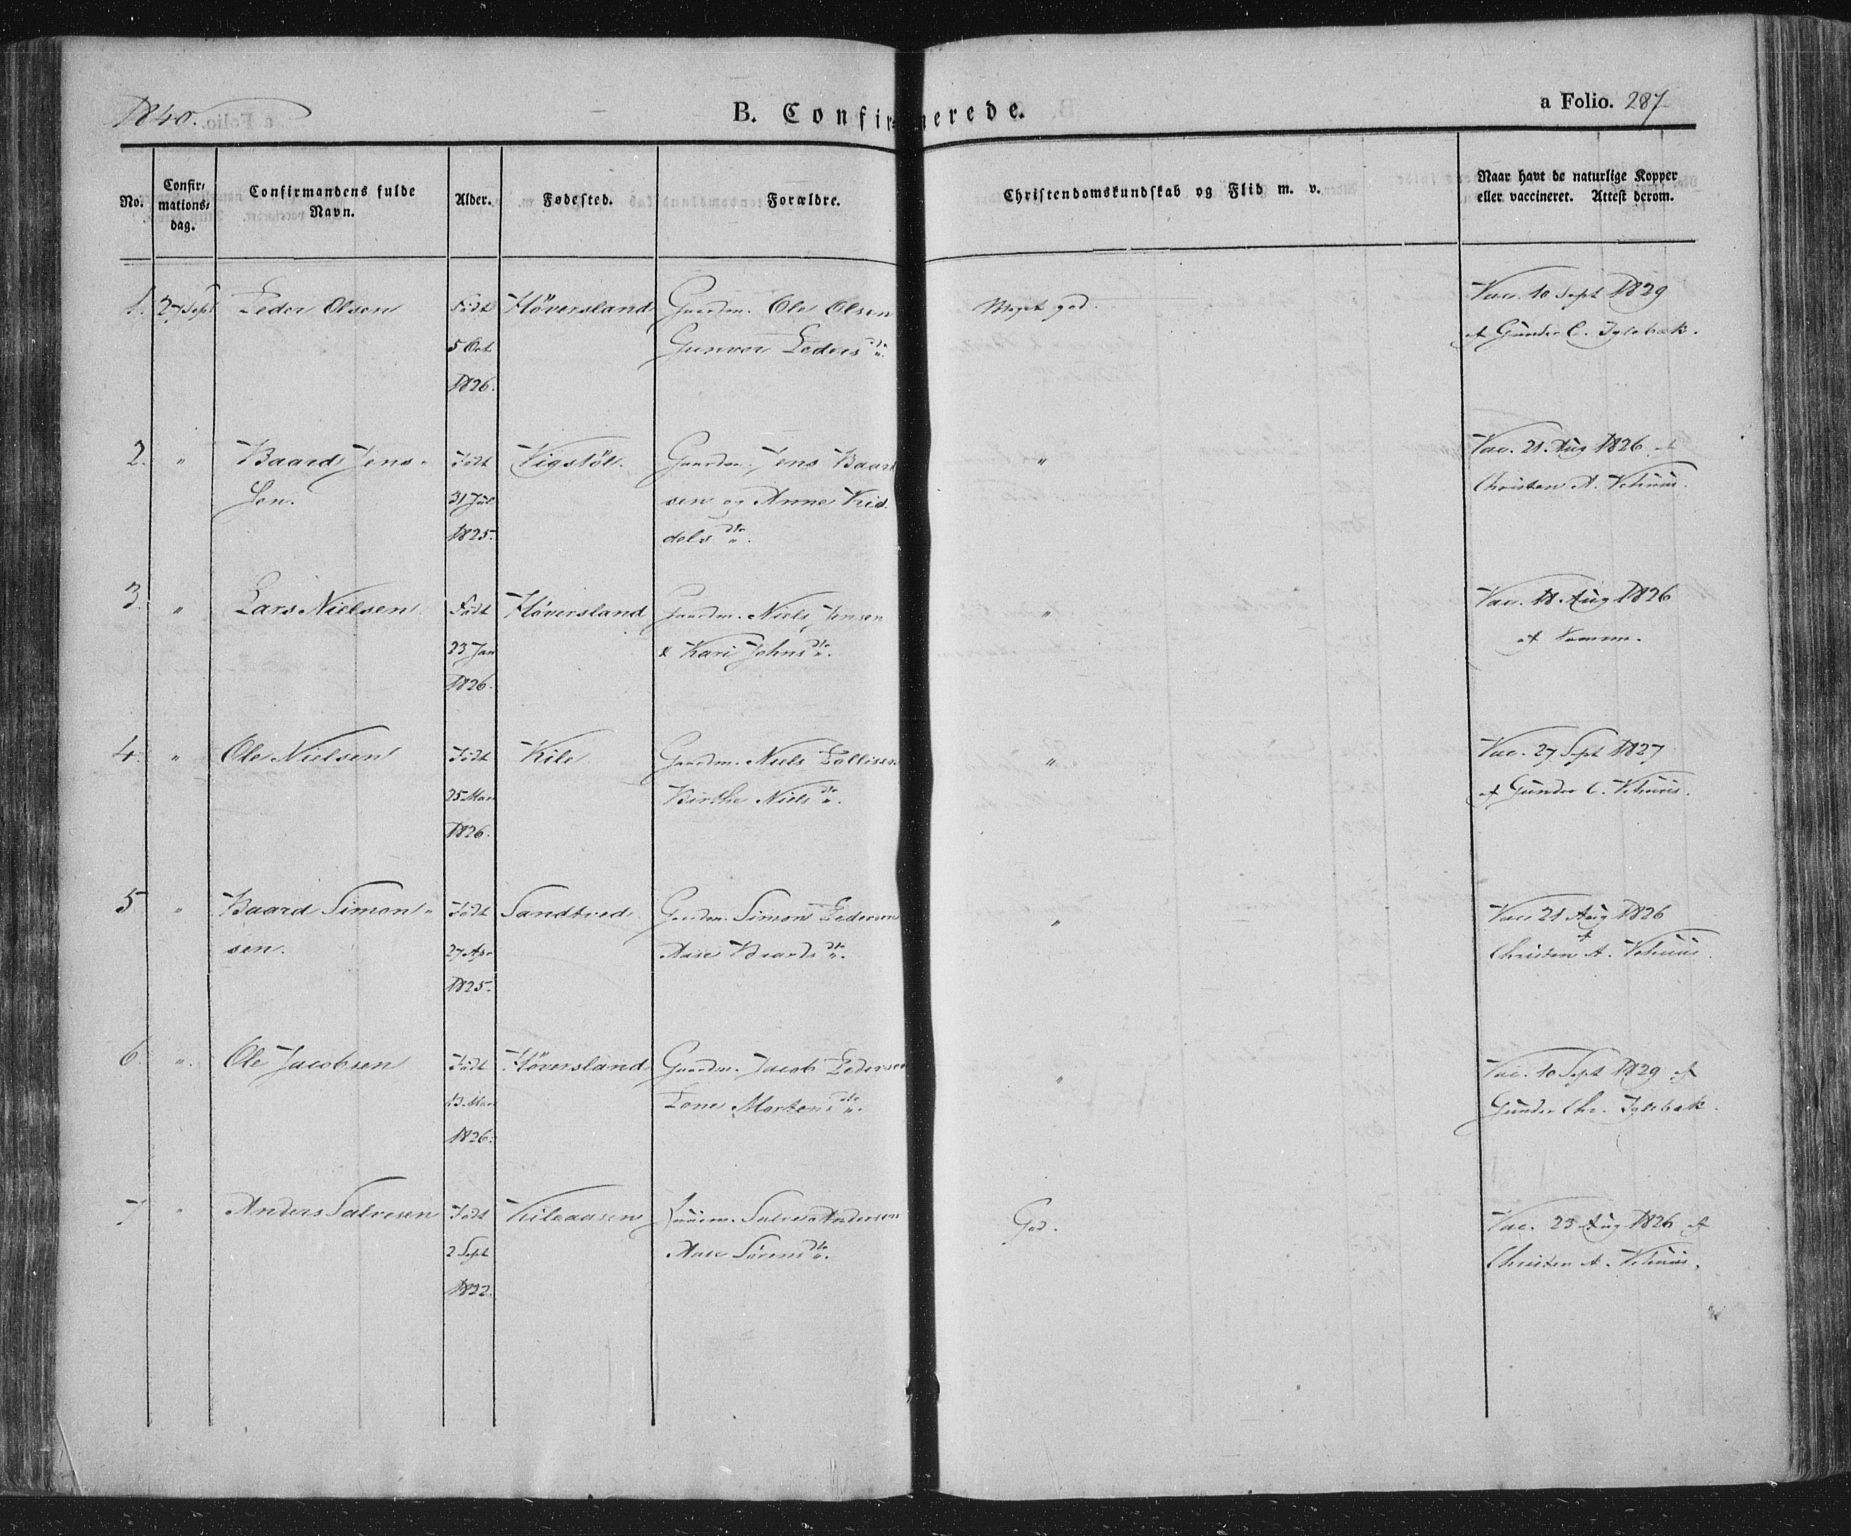 1840.
B. Confirmerede.
a Folio. 287
No.
Confir-
mations-
dag.
Confirmandens fulde
Navn.
Alder.
Fødested.
Forældre.
Christendomskundskab og Flid m. v.
Naar havt de naturlige Kopper
eller vaccineret. Attest derom.
1. 27 Sept Peder Olsen Født Høversland Gaardm. Ole Olsen Meget god. Vac. 10 Sept 1829
5 Oct Gunvor Peders dtr. af Gunder C. Igleback.
1826.
2. " Baard Jens- Født Vigstøl. Gaardm. Jens Baard " Vac. 21 Aug 1826 af
sen. 31 Jul sen og Anne Kid Christen A. Vehuus.
1825. dels dtr.
3. " Lars Nielsen Født Høversland Gaardm. Niels Jensen " Vac. 18 Aug 1826
23 Jan & Kari Johns dtr. af
1826.
4. " Ole Nielsen Født Kile Gaardm. Niels Tollisen " Vac. 27 Sept 1827
25 Mar Birthe Niels dtr. af Gunder C. Vehuus.
1826.
5 " Baard Simon- Født Sandtved Gaardm. Simon Pedersen " Vac 21 Aug 1826
sen. 27 Apr Aase Baards dtr. af
1825. Christen A. Vehuus.
6. " Ole Jacobsen Født Høversland Gaardm. Jacob Pedersen " Vac. 10 Sept 1829 af
13 Mar Tone Mortens dtr. Gunder Chr. Igleback.
1826.
7 " Anders Salvesen Født Kileaasen Huusm. Salve Andersen God. Vac. 23 Aug 1826 af
2 Sept Aase Sørens dtr. Christen A. Vehuus.
1822.